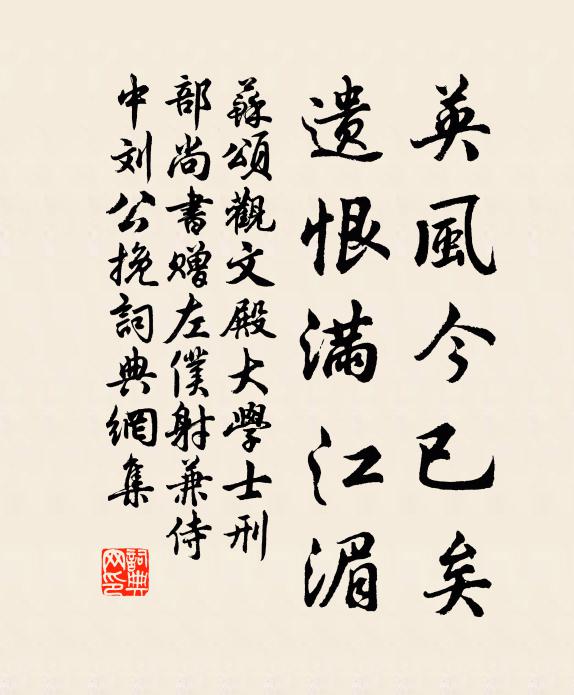 英風今已矣
遺恨满江湄
蘇頌觀文殿大學士刑
部尚書赠左僕射兼侍
中刘公挽詞典網集
詞典
网印